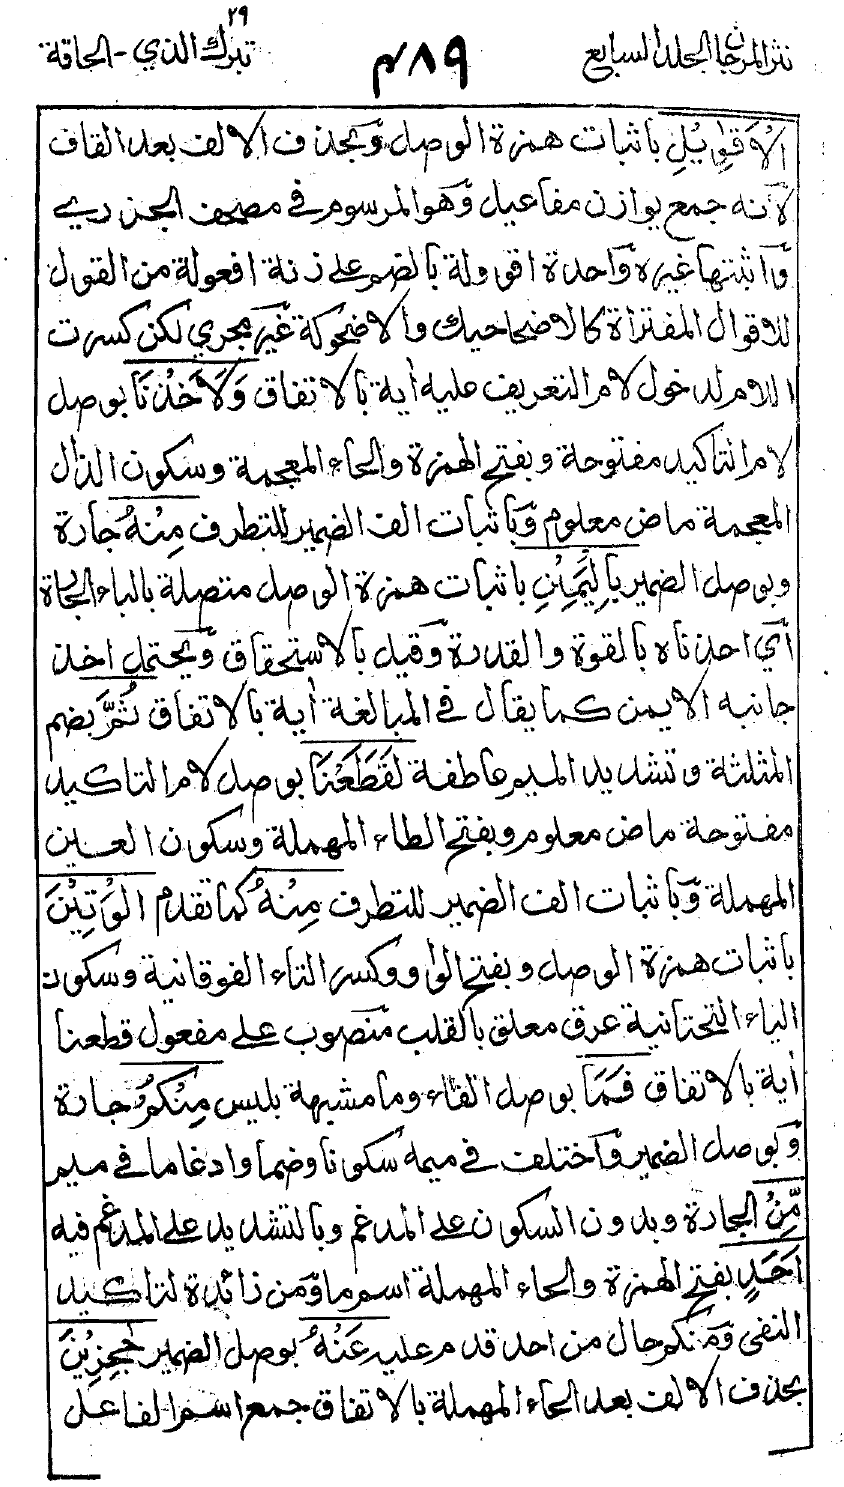 نثر المرجان الجلد السابع
٤٨٩
تبرك الذي ٢٩ - الحاقة
الْأَقَوِيْلِ باثبات همزة الوصل وبحذف الالف بعد القاف
لانه جمع يوازن مفاعيل وهو المرسوم في مصحف الجزري
واثبتها غيره واحدة اقوولة بالضم على زنة افعولة من القول
للاقوال المفتراة كالاضاحيك والاضحوكة غير مجرى لكن كسرت
اللام لدخول لام التعريف عليه أية بالاتفاق وَلَاَخَذْنَا بوصل
لام التاكيد مفتوحة وبفتح الهمزة والخاء المعجمة وسكون الذال
المعجمة ماض معلوم وباثبات الف الضمير للتطرف مِنْهُ جارة
وبوصل الضمير بِالْيَمِيْنِ باثبات همزة الوصل متصلة بالباء الجارة
أي اخذناه بالقوة والقدرة وقيل بالاستحقاق ويحتمل اخذ
جانبه الايمن كما يقال في المبالغة أية بالاتفاق ثُمَّ بضم
المثلثة وتشديد الميم عاطفة لَقَطَعْنَا بوصل لام التاكيد
مفتوحة ماض معلوم وبفتح الطاء المهملة وسكون العين
المهملة وباثبات الف الضمير للتطرف مِنْهُ كما تقدم الْوَتِيْنَ
باثبات همزة الوصل وبفتح الواو وكسر التاء الفوقانية وسكون
الياء التحتانية عرق معلق بالقلب منصوب على مفعول قطعنا
أية بالاتفاق فَمَا بوصل الفاء وما مشبهة بليس مِنْكُمْ جارة
وبوصل الضمير واختلف في ميمه سكونا وضما وادغاما في ميم
مِّنْ الجارة وبدون السكون على المدغم وبالتشديد على المدغم فيه
اَحَدٍ بفتح الهمزة والحاء المهملة اسم ما ومن زائدة لتاكيد
النفى ومنكم حال من احد قدم عليه عَنْهُ بوصل الضمير حٰجِزِيْنَ
بحذف الالف بعد الحاء المهملة بالاتفاق جمع اسم الفاعل